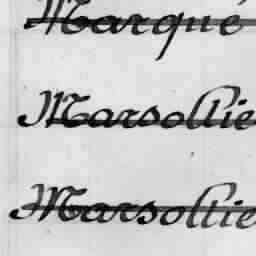 Marqué
Marsollie
Marsollie